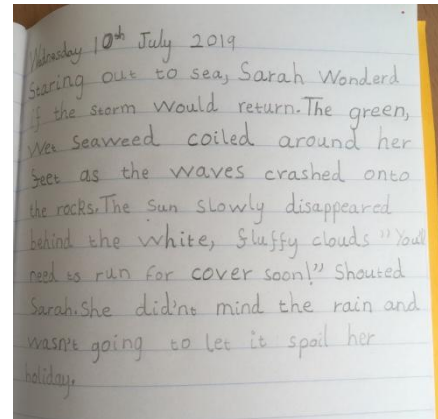 Wednesday 10th July 2019
Staring out to sea, Sarah Wonderd
if the storm would return. The green,
wet seaweed coiled around her
feet as the waves crashed onto
the rocks. The sun slowly disappeared
behind the white, fluffy clouds "You'll
need to run for cover soon!" Shouted
Sarah. She did'nt mind the rain and
wasn't going to let it spoil her
holiday.